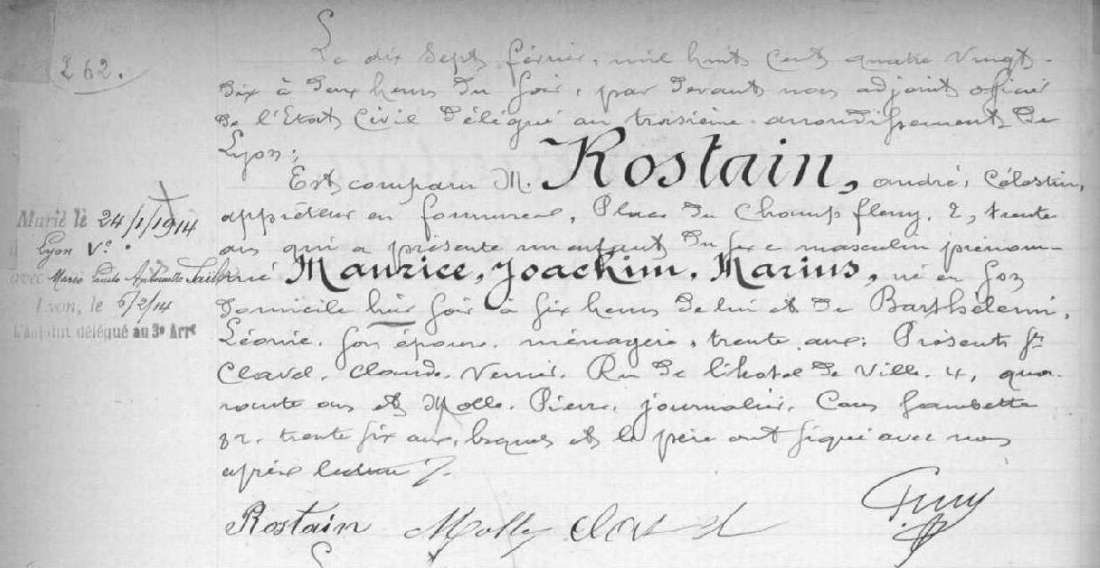 262.
Le dix sept février, mil huit cent quatre vingt
dix à deux heures du soir, par devant nous adjoint officier
de l'Etat Civil délégué au troisième arrondissement de
Lyon;
Est comparu M. Rostain, andré, Célestin,
apprêteur en fourrures, Place du Champ fleury, 2, trente
ans qui a présenté un enfant du sexe masculin prénom-
mé Maurice, Joachim, Marius, né en son
domicile hier soir à six heures de lui et de Barthélemi,
Léonie, son épouse, ménagère, trente ans; Présents Srs
Clavel, Claude, Rue de l'hotel de Ville, 4, qua-
rante ans et Molle, Pierre, journalier, Cours Gambetta
trente six ans, lesquels et le père ont signé avec nous
après lecture
Marié le 24/1/1914
Lyon Ve
avec Antoinette
Lyon, le 5/2/14
L'adjoint délégué au 3e Arrt
Rostain Molle